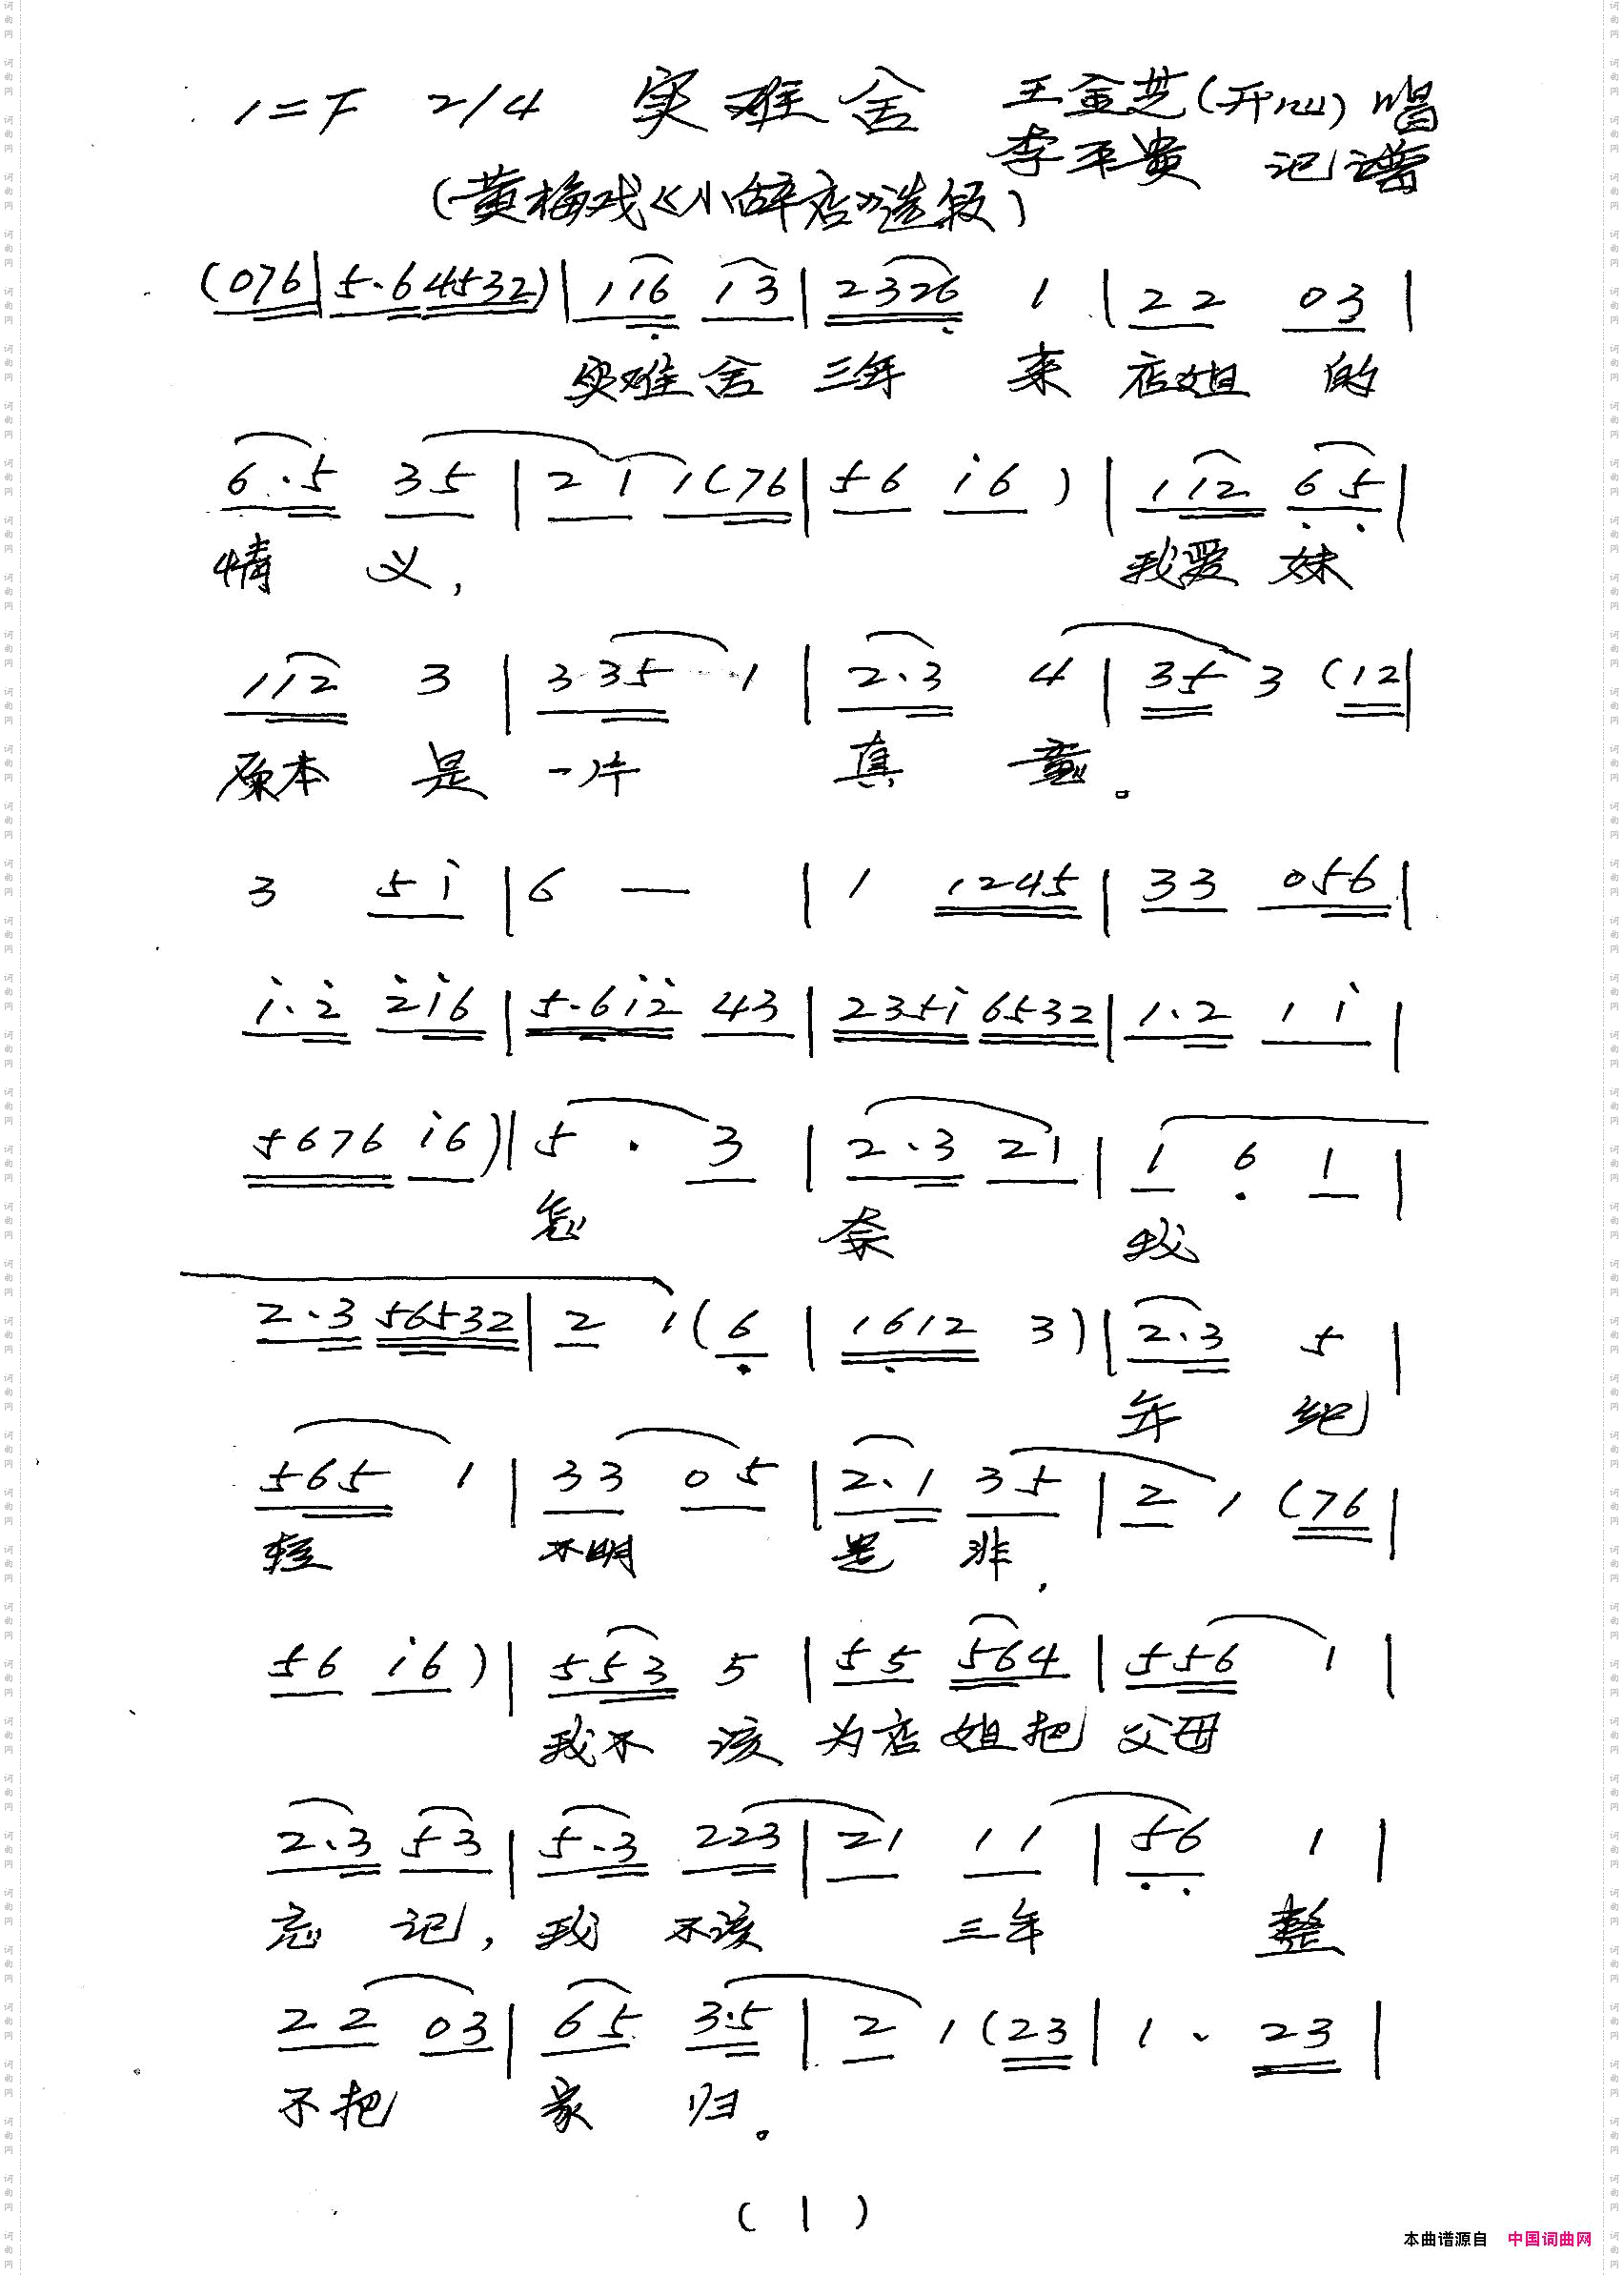 1=F 2/4 实难舍 王金芝(开心)唱
李平贵 记谱
(黄梅戏《小辞店》选段)
(076|5.64532)|116 13|2326 1|22 03|
实难舍 三年 来 店姐 的
6.5 35|21 1(76|56 i6)|112 65|
情 义, 我爱 妹
112 3|335 1|2.3 4|35 3 (12|
原本 是 一片 真 意。
3 5i|6 —|1 1245|33 056|
i.2 2i6|5.6i2 43|235i 6532|1.2 1i|
5676 i6)|5. 3|2.3 21|1 6 1|
怎 奈 我
2.3 56532|2 1(6|1612 3)|2.3 5|
年 纪
565 1|33 05|2.1 35|2 1 (76|
轻 不明 是 非,
56 i6)|553 5|55 564|556 1|
我不 该 为店 姐把 父母
2.3 53|5.3 223|21 11|56 1|
忘 记, 我 不该 三年 整
22 03|65 3.5|2 1(23|1. 23|
不把 家 归。
(1)
本曲谱源自 中国词曲网